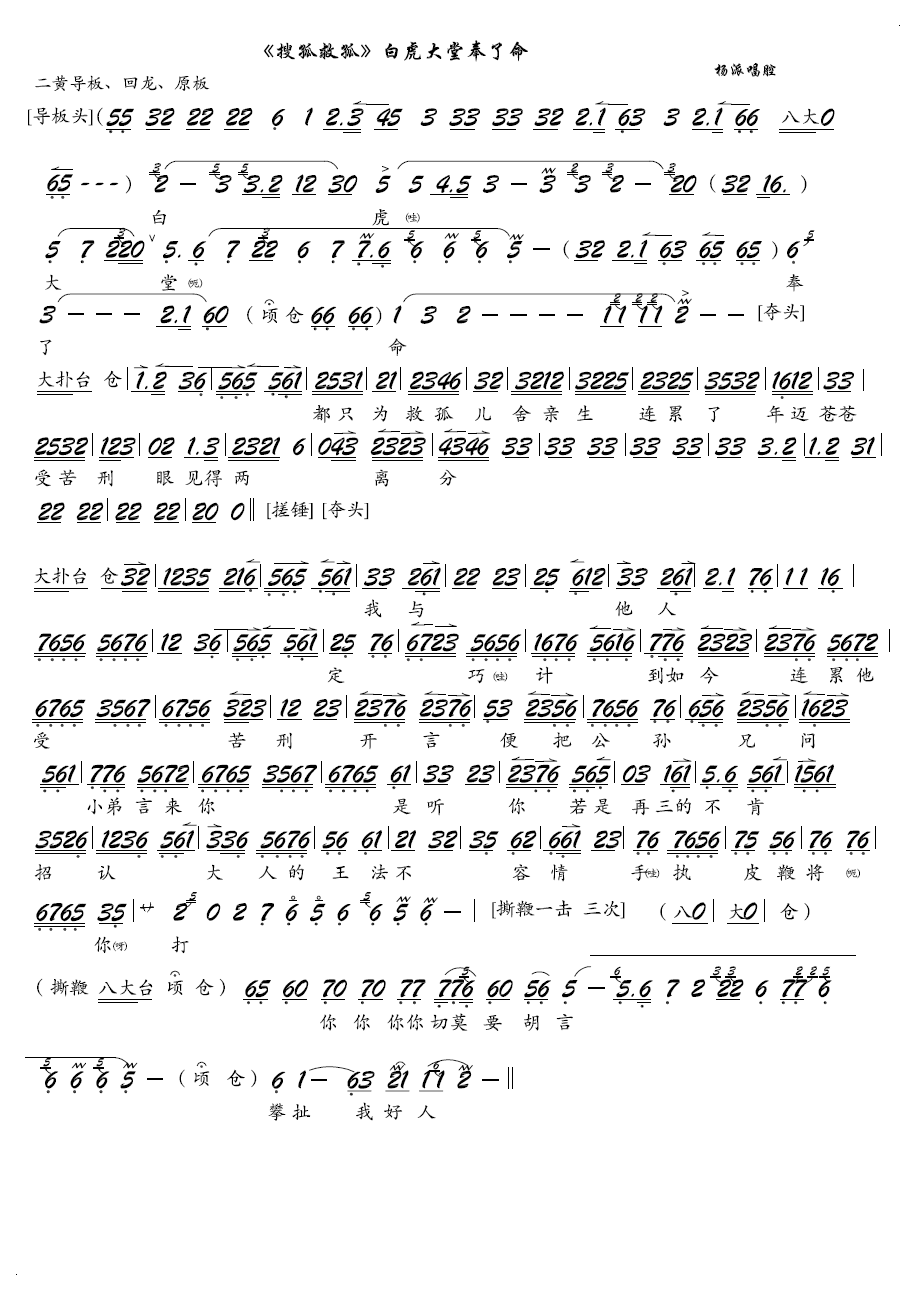 《搜孤救孤》白虎大堂奉了命
杨派唱腔
二黄导板、回龙、原板
[导板头](55 32 22 22 6 1 2.3 45 3 33 33 32 2.1 63 3 2.1 66 八大0
65 - - - ) 2 - 3 3.2 12 30 5 5 4.5 3 - 3 3 2 - 20 (32 16. )
白 虎(哇)
5 7 220 5. 6 7 22 6 7 7.6 6 6 6 5 - (32 2.1 63 65 65 )6
大 堂(呃) 奉
3 - - - 2.1 60 (顷仓 66 66) 1 3 2 - - - - 11 11 2 - - [夺头]
了 命
大扑台 仓|1.2 36|565 561|2531|21|2346|32|3212|3225|2325|3532|1612|33|
都只为救孤儿舍亲生 连累了 年迈苍苍
2532|123|02 1.3|2321 6|043 2323|4346 33|33 33|33 33|33 3.2|1.2 31|
受苦刑 眼见得两 离 分
22 22|22 22|20 0‖ [搓锤] [夺头]
大扑台 仓32|1235 216|565 561|33 261|22 23|25 612|33 261|2.1 76|11 16|
我与 他人
7656 5676|12 36|565 561|25 76|6723 5656|1676 5616|776 2323|2376 5672|
定 巧(哇)计 到如今 连累他
6765 3567|6756 323|12 23|2376 2376|53 2356|7656 76|656 2356|1623
受 苦刑 开言 便把公孙 兄问
561|776 5672|6765 3567|6765 61|33 23|2376 565|03 161|5.6 561|1561
小弟言来你 是听 你 若是再三的不肯
3526|1236 561|336 5676|56 61|21 32|35 62|661 23|76 7656|75 56|76 76|
招 认 大人的王法不 容情 手(哇)执 皮鞭将(呃)
6765 35|サ 2 0 2 7 6 5 6 6 5 6 - | [撕鞭一击 三次] (八0|大0|仓)
你(呀) 打
(撕鞭 八大台 顷 仓) 65 60 70 70 77 776 60 56 5 - 5.6 7 2 22 6 77 6
你你你你切莫要胡言
6 6 6 5 - (顷 仓) 6 1 - 63 21 11 2 - ‖
攀扯 我好人